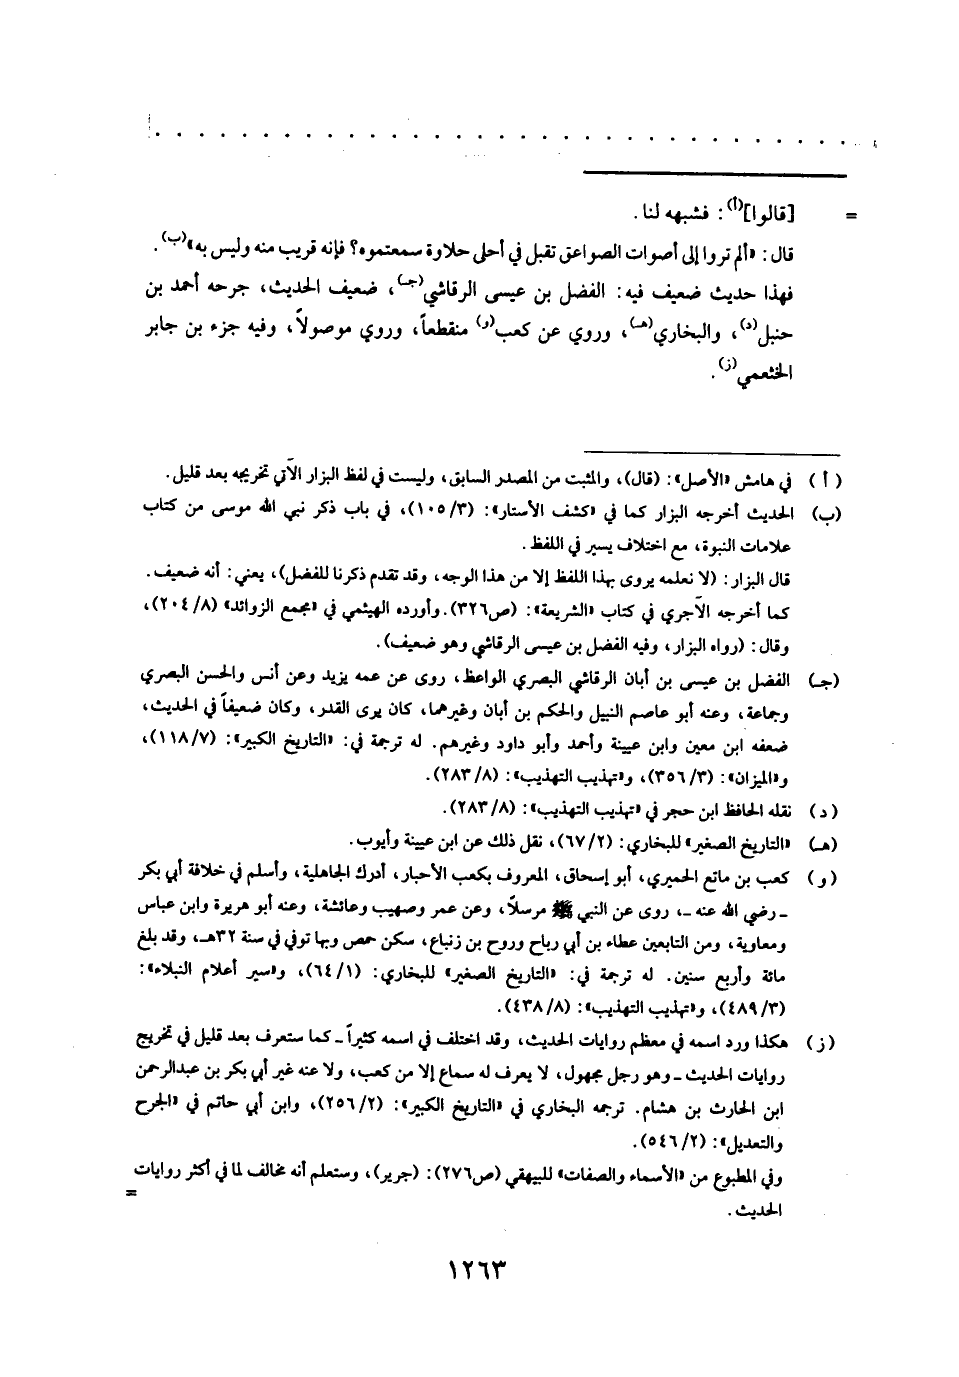 = [قالوا](أ): فشبهه لنا.
قال: «ألم تروا إلى أصوات الصواعق تقبل في أحلى حلاوة سمعتموه؟ فإنه قريب منه وليس به»(ب).
فهذا حديث ضعيف فيه: الفضل بن عيسى الرقاشي(جـ)، ضعيف الحديث، جرحه أحمد بن
حنبل(د)، والبخاري(هـ)، وروي عن كعب(و) منقطعاً، وروي موصولاً، وفيه جزء بن جابر
الخثعمي(ز).
(أ) في هامش «الأصل»: (قال)، والمثبت من المصدر السابق، وليست في لفظ البزار الآتي تخريجه بعد قليل.
(ب) الحديث أخرجه البزار كما في «كشف الأستار»: (٣/١٠٥)، في باب ذكر نبي الله موسى من كتاب
علامات النبوة، مع اختلاف يسير في اللفظ.
قال البزار: (لا نعلمه يروى بهذا اللفظ إلا من هذا الوجه، وقد تقدم ذكرنا للفضل)، يعني: أنه ضعيف.
كما أخرجه الآجري في كتاب «الشريعة»: (ص٣٢٦). وأورده الهيثمي في «مجمع الزوائد» (٨/٢٠٤)،
وقال: (رواه البزار، وفيه الفضل بن عيسى الرقاشي وهو ضعيف).
(جـ) الفضل بن عيسى بن أبان الرقاشي البصري الواعظ، روى عن عمه يزيد وعن أنس والحسن البصري
وجماعة، وعنه أبو عاصم النبيل والحكم بن أبان وغيرهما، كان يرى القدر، وكان ضعيفاً في الحديث،
ضعفه ابن معين وابن عيينة وأحمد وأبو داود وغيرهم. له ترجمة في: «التاريخ الكبير»: (٧/١١٨)،
و«الميزان»: (٣/٣٥٦)، و«تهذيب التهذيب»: (٨/٢٨٣).
(د) نقله الحافظ ابن حجر في «تهذيب التهذيب»: (٨/٢٨٣).
(هـ) «التاريخ الصغير» للبخاري: (٢/٦٧)، نقل ذلك عن ابن عيينة وأيوب.
(و) كعب بن ماتع الحميري، أبو إسحاق، المعروف بكعب الأحبار، أدرك الجاهلية، وأسلم في خلافة أبي بكر
ـ رضي الله عنه ـ، روى عن النبي ﷺ مرسلاً، وعن عمر وصهيب وعائشة، وعنه أبو هريرة وابن عباس
ومعاوية، ومن التابعين عطاء بن أبي رباح وروح بن زنباع، سكن حمص وبها توفي في سنة ٣٢هـ، وقد بلغ
مائة وأربع سنين. له ترجمة في: «التاريخ الصغير» للبخاري: (١/٦٤)، و«سير أعلام النبلاء»:
(٣/٤٨٩)، و«تهذيب التهذيب»: (٨/٤٣٨).
(ز) هكذا ورد اسمه في معظم روايات الحديث، وقد اختلف في اسمه كثيراً ـ كما ستعرف بعد قليل في تخريج
روايات الحديث ـ وهو رجل مجهول، لا يعرف له سماع إلا من كعب، ولا عنه غير أبي بكر بن عبدالرحمن
ابن الحارث بن هشام. ترجمه البخاري في «التاريخ الكبير»: (٢/٢٥٦)، وابن أبي حاتم في «الجرح
والتعديل»: (٢/٥٤٦).
وفي المطبوع من «الأسماء والصفات» للبيهقي (ص٢٧٦): (جرير)، وستعلم أنه مخالف لما في أكثر روايات
الحديث. =
١٢٦٣